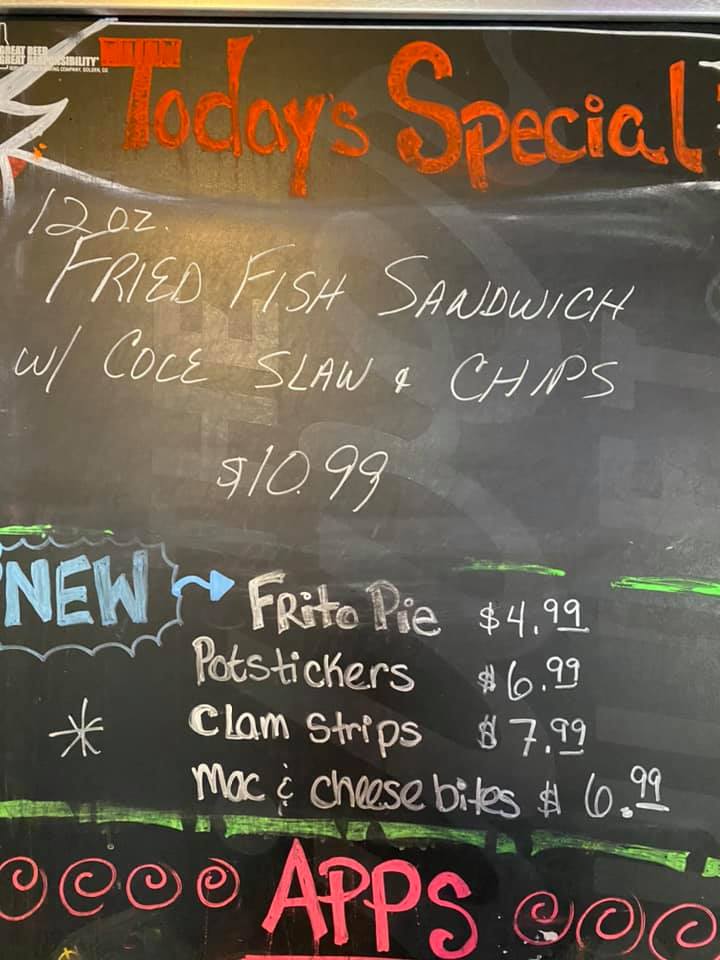 GREAT BEER
GREAT RESPONSIBILITY
COMPANY, GOLDEN, CO
Today's Special
12 oz.
FRIED FISH SANDWICH
w/ COLE SLAW & CHIPS
$10.99
NEW
Frito Pie $4.99
Potstickers $6.99
Clam Strips $7.99
Mac & cheese bites $6.99
APPS